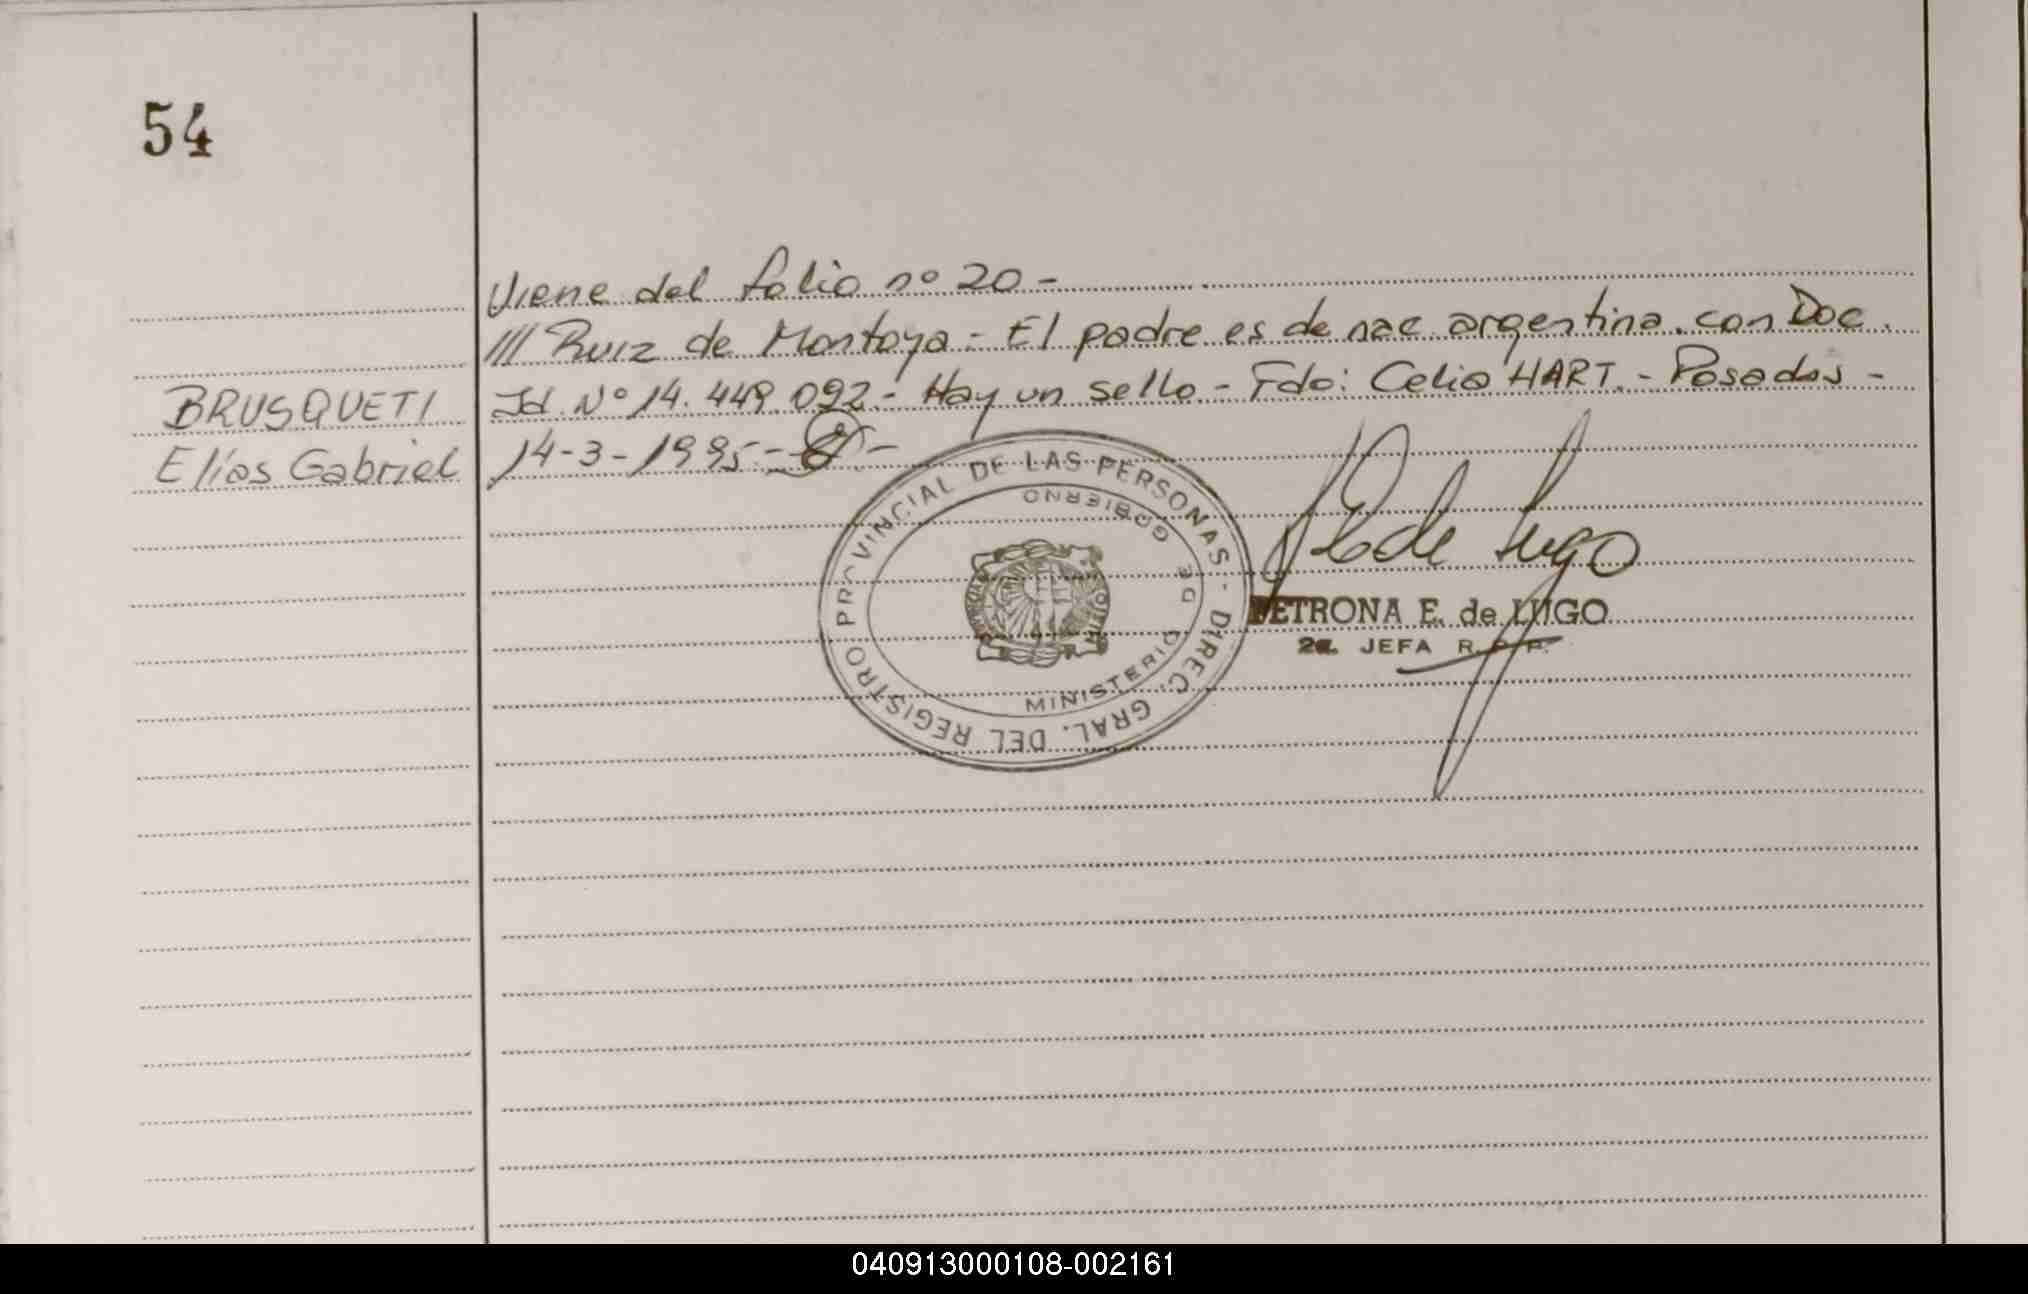 54
Viene del folio nº 20 -
/// Ruiz de Montoya - El padre es de nac argentina con Doc.
BRUSQUETI
Elías Gabriel
Id Nº 14.449.092.- Hay un sello - Fdo: Celia HART. - Posadas -
14-3-1995.-
REGISTRO PROVINCIAL DE LAS PERSONAS - DIREC. GRAL. DEL
MINISTERIO DE GOBIERNO
P E de Lugo
PETRONA E. de LUGO
2a. JEFA R.P.P.
040913000108-002161